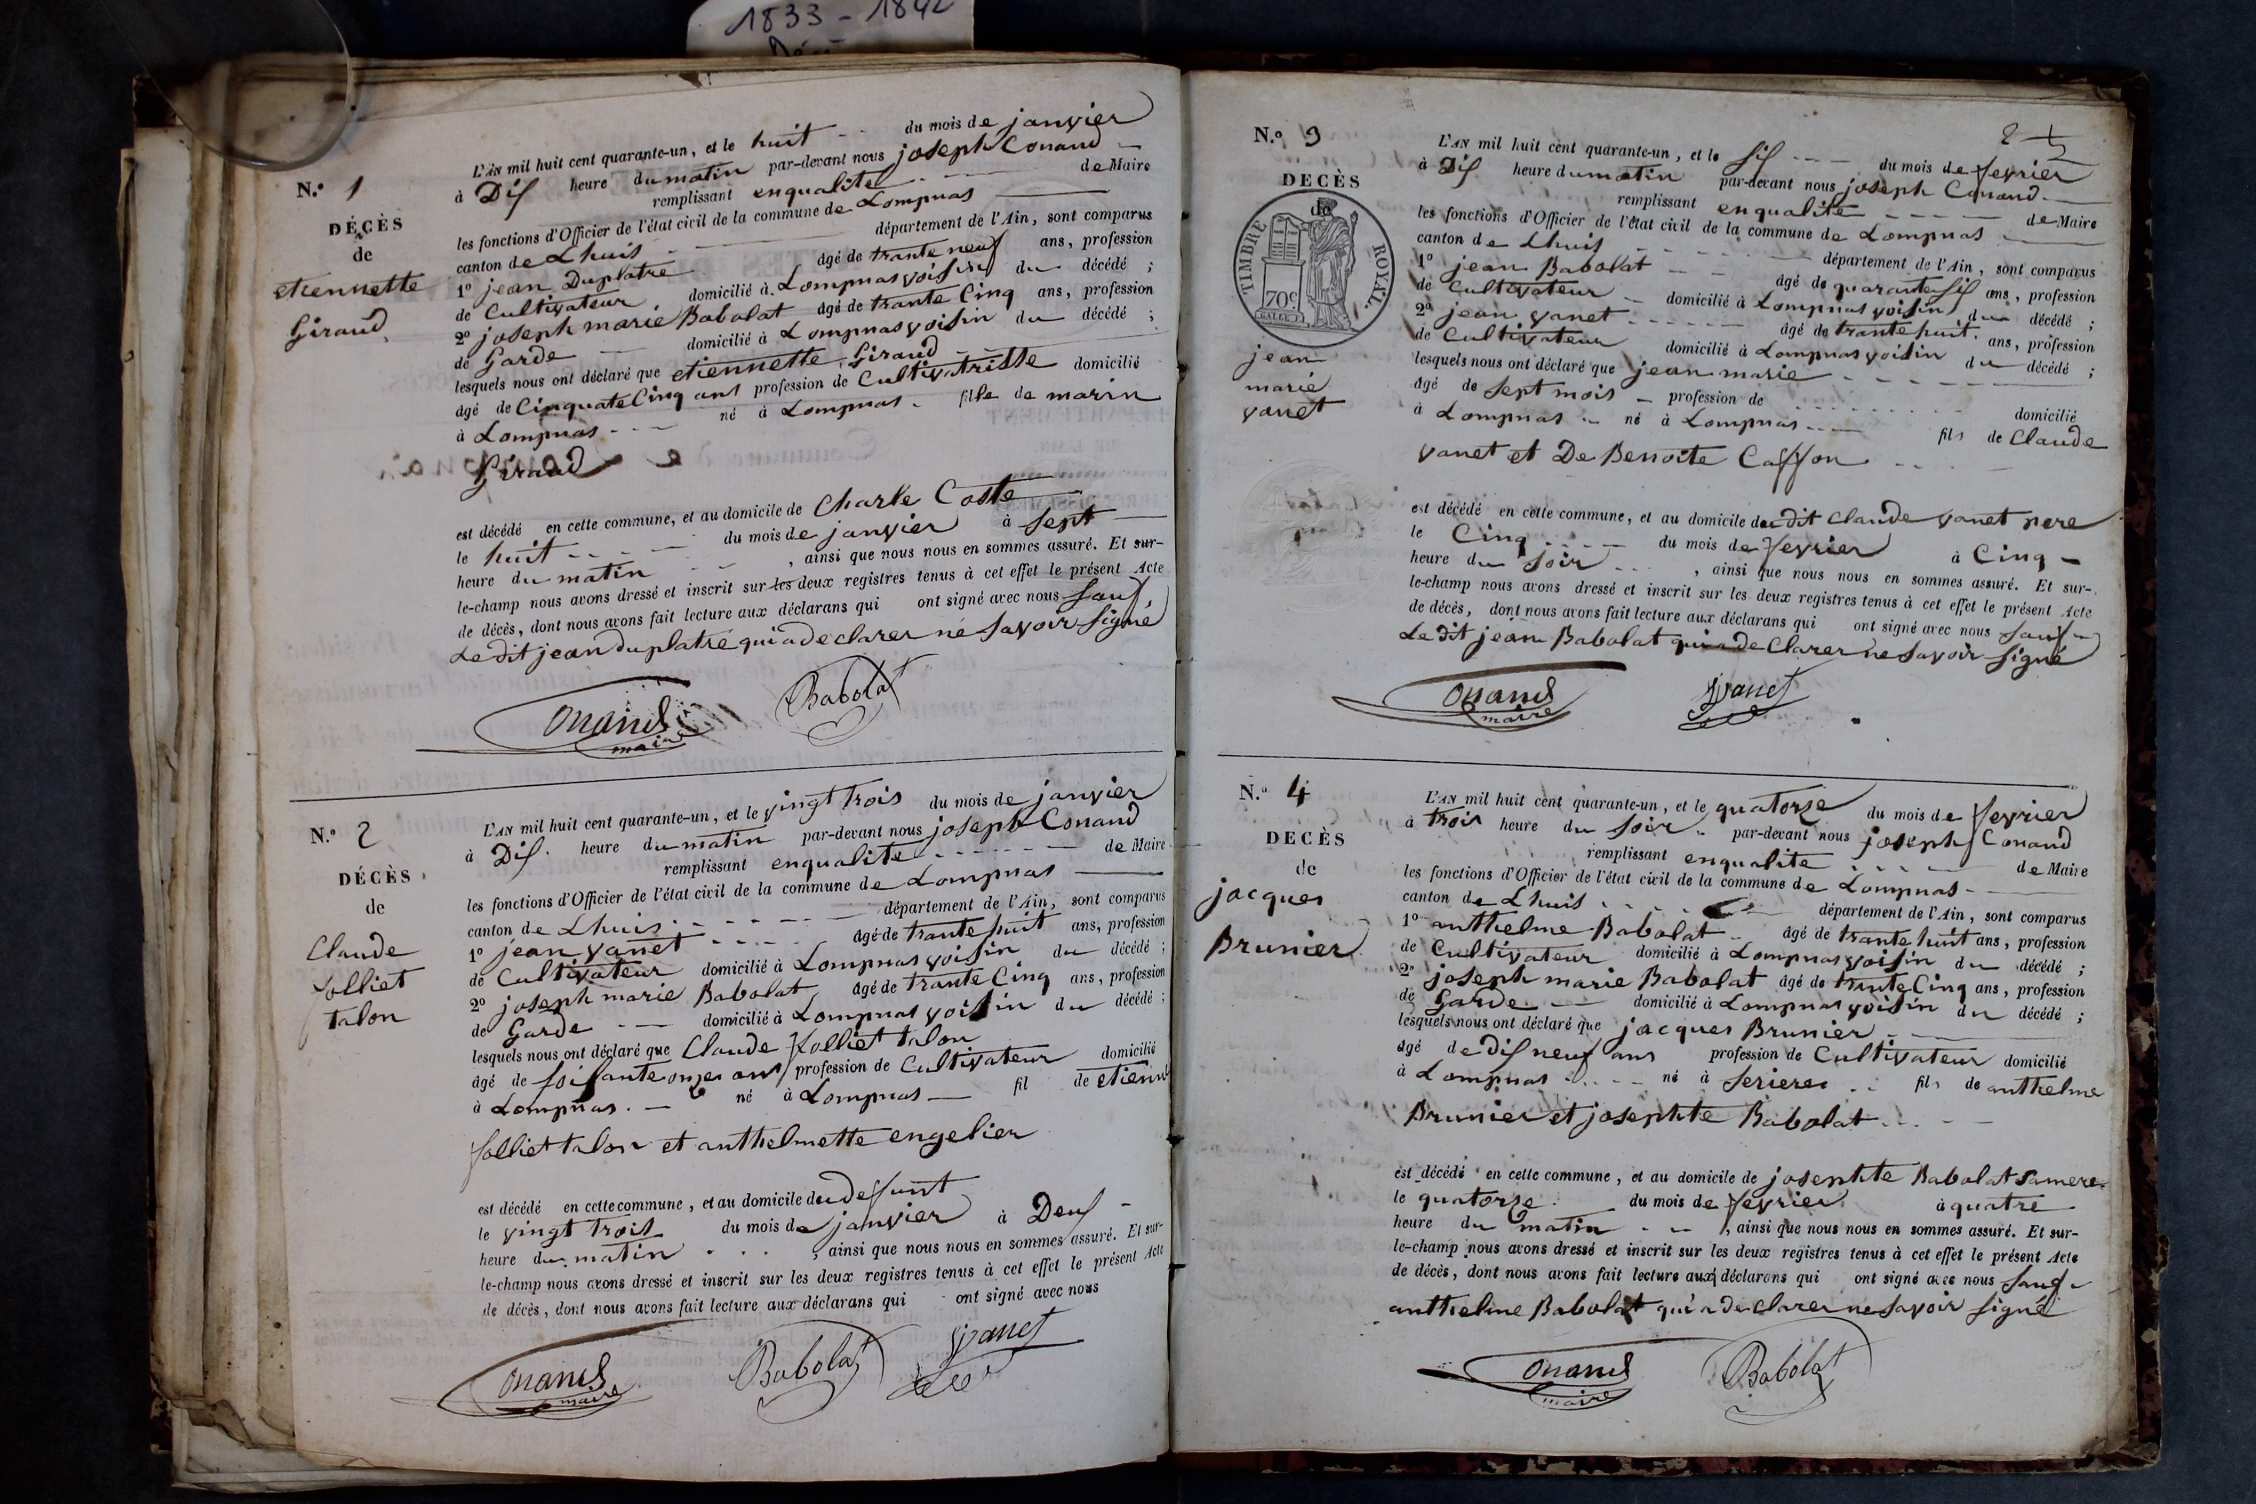 1833 - 1842
N.º 1
DÉCÈS
de
etiennette
Giraud
L'AN mil huit cent quarante-un, et le huit du mois de janvier
à Dix heure du matin par-devant nous joseph Conand
remplissant enqualité de Maire
les fonctions d'Officier de l'état civil de la commune de Lompnas
canton de Lhuis département de l'Ain, sont comparus
1º jean Duplatre âgé de trante neuf ans, profession
de Cultivateur domicilié à Lompnas voisin du décédé ;
2º joseph marie Babolat âgé de trante Cinq ans, profession
de Garde domicilié à Lompnas voisin du décédé ;
lesquels nous ont déclaré que etiennette Giraud
âgé de Cinquate Cinq ans profession de Cultivatrisse domicilié
à Lompnas né à Lompnas fille de marin
Giraud
est décédé en cette commune, et au domicile de Charle Coste
le huit du mois de janvier à Sept
heure du matin , ainsi que nous nous en sommes assuré. Et sur-
le-champ nous avons dressé et inscrit sur les deux registres tenus à cet effet le présent Acte
de décès, dont nous avons fait lecture aux déclarans qui ont signé avec nous Sauf
Le dit jean duplatre qui a de clarer ne Savoir Signé
Conand Babolat
maire
N.º 2
DÉCÈS
de
Claude
folliet
talon
L'AN mil huit cent quarante-un, et le vingt trois du mois de janvier
à Dix heure du matin par-devant nous joseph Conand
remplissant enqualité de Maire
les fonctions d'Officier de l'état civil de la commune de Lompnas
canton de Lhuis département de l'Ain, sont comparus
1º jean vanet âgé de trante huit ans, profession
de Cultivateur domicilié à Lompnas voisin du décédé ;
2º joseph marie Babolat âgé de trante Cinq ans, profession
de Garde domicilié à Lompnas voisin du décédé ;
lesquels nous ont déclaré que Claude folliet talon
âgé de soixante onzes ans profession de Cultivateur domicilié
à Lompnas né à Lompnas fil de etienne
folliet talon et anthelmette engelier
est décédé en cette commune, et au domicile du deffunt
le vingt trois du mois de janvier à Deux
heure du matin , ainsi que nous nous en sommes assuré. Et sur-
le-champ nous avons dressé et inscrit sur les deux registres tenus à cet effet le présent Acte
de décès, dont nous avons fait lecture aux déclarans qui ont signé avec nous
Conand Babolat Jvanet
maire
2
N.º 3
DECÈS
de
TIMBRE ROYAL
70c
jean
marie
vanet
L'AN mil huit cent quarante-un, et le six du mois de fevrier
à Dix heure du matin par-devant nous joseph Conand
remplissant enqualité de Maire
les fonctions d'Officier de l'état civil de la commune de Lompnas
canton de Lhuis département de l'Ain, sont comparus
1º jean Babolat âgé de quarante six ans, profession
de Cultivateur domicilié à Lompnas voisin du décédé ;
2º jean vanet âgé de trante huit ans, profession
de Cultivateur domicilié à Lompnas voisin du décédé ;
lesquels nous ont déclaré que jean marie
âgé de sept mois profession de domicilié
à Lompnas né à Lompnas fils de Claude
vanet et De Benoite Caffon
est décédé en cette commune, et au domicile du dit Claude vanet pere
le Cinq du mois de fevrier à Cinq
heure du Soir , ainsi que nous nous en sommes assuré. Et sur-
le-champ nous avons dressé et inscrit sur les deux registres tenus à cet effet le présent Acte
de décès, dont nous avons fait lecture aux déclarans qui ont signé avec nous Sauf
Le dit jean Babolat qui a de Clarer ne Savoir Signé
Conand Jvanet
maire
N.º 4
DECÈS
de
jacques
Brunier
L'AN mil huit cent quarante-un, et le quatorze du mois de fevrier
à trois heure du Soir par-devant nous joseph Conand
remplissant enqualité de Maire
les fonctions d'Officier de l'état civil de la commune de Lompnas
canton de Lhuis département de l'Ain, sont comparus
1º anthelme Babolat âgé de trante huit ans, profession
de Cultivateur domicilié à Lompnas voisin du décédé ;
2º joseph marie Babolat âgé de trante Cinq ans, profession
de Garde domicilié à Lompnas voisin du décédé ;
lesquels nous ont déclaré que jacques Brunier
âgé de dix neuf ans profession de Cultivateur domicilié
à Lompnas né à Serieres fils de anthelme
Brunier et josephte Babolat
est décédé en cette commune, et au domicile de josephte Babolat sa mere
le quatorze du mois de fevrier à quatre
heure du matin , ainsi que nous nous en sommes assuré. Et sur-
le-champ nous avons dressé et inscrit sur les deux registres tenus à cet effet le présent Acte
de décès, dont nous avons fait lecture aux déclarans qui ont signé avec nous Sauf
anthelme Babolat qui a de Clarer ne Savoir Signé
Conand Babolat
maire